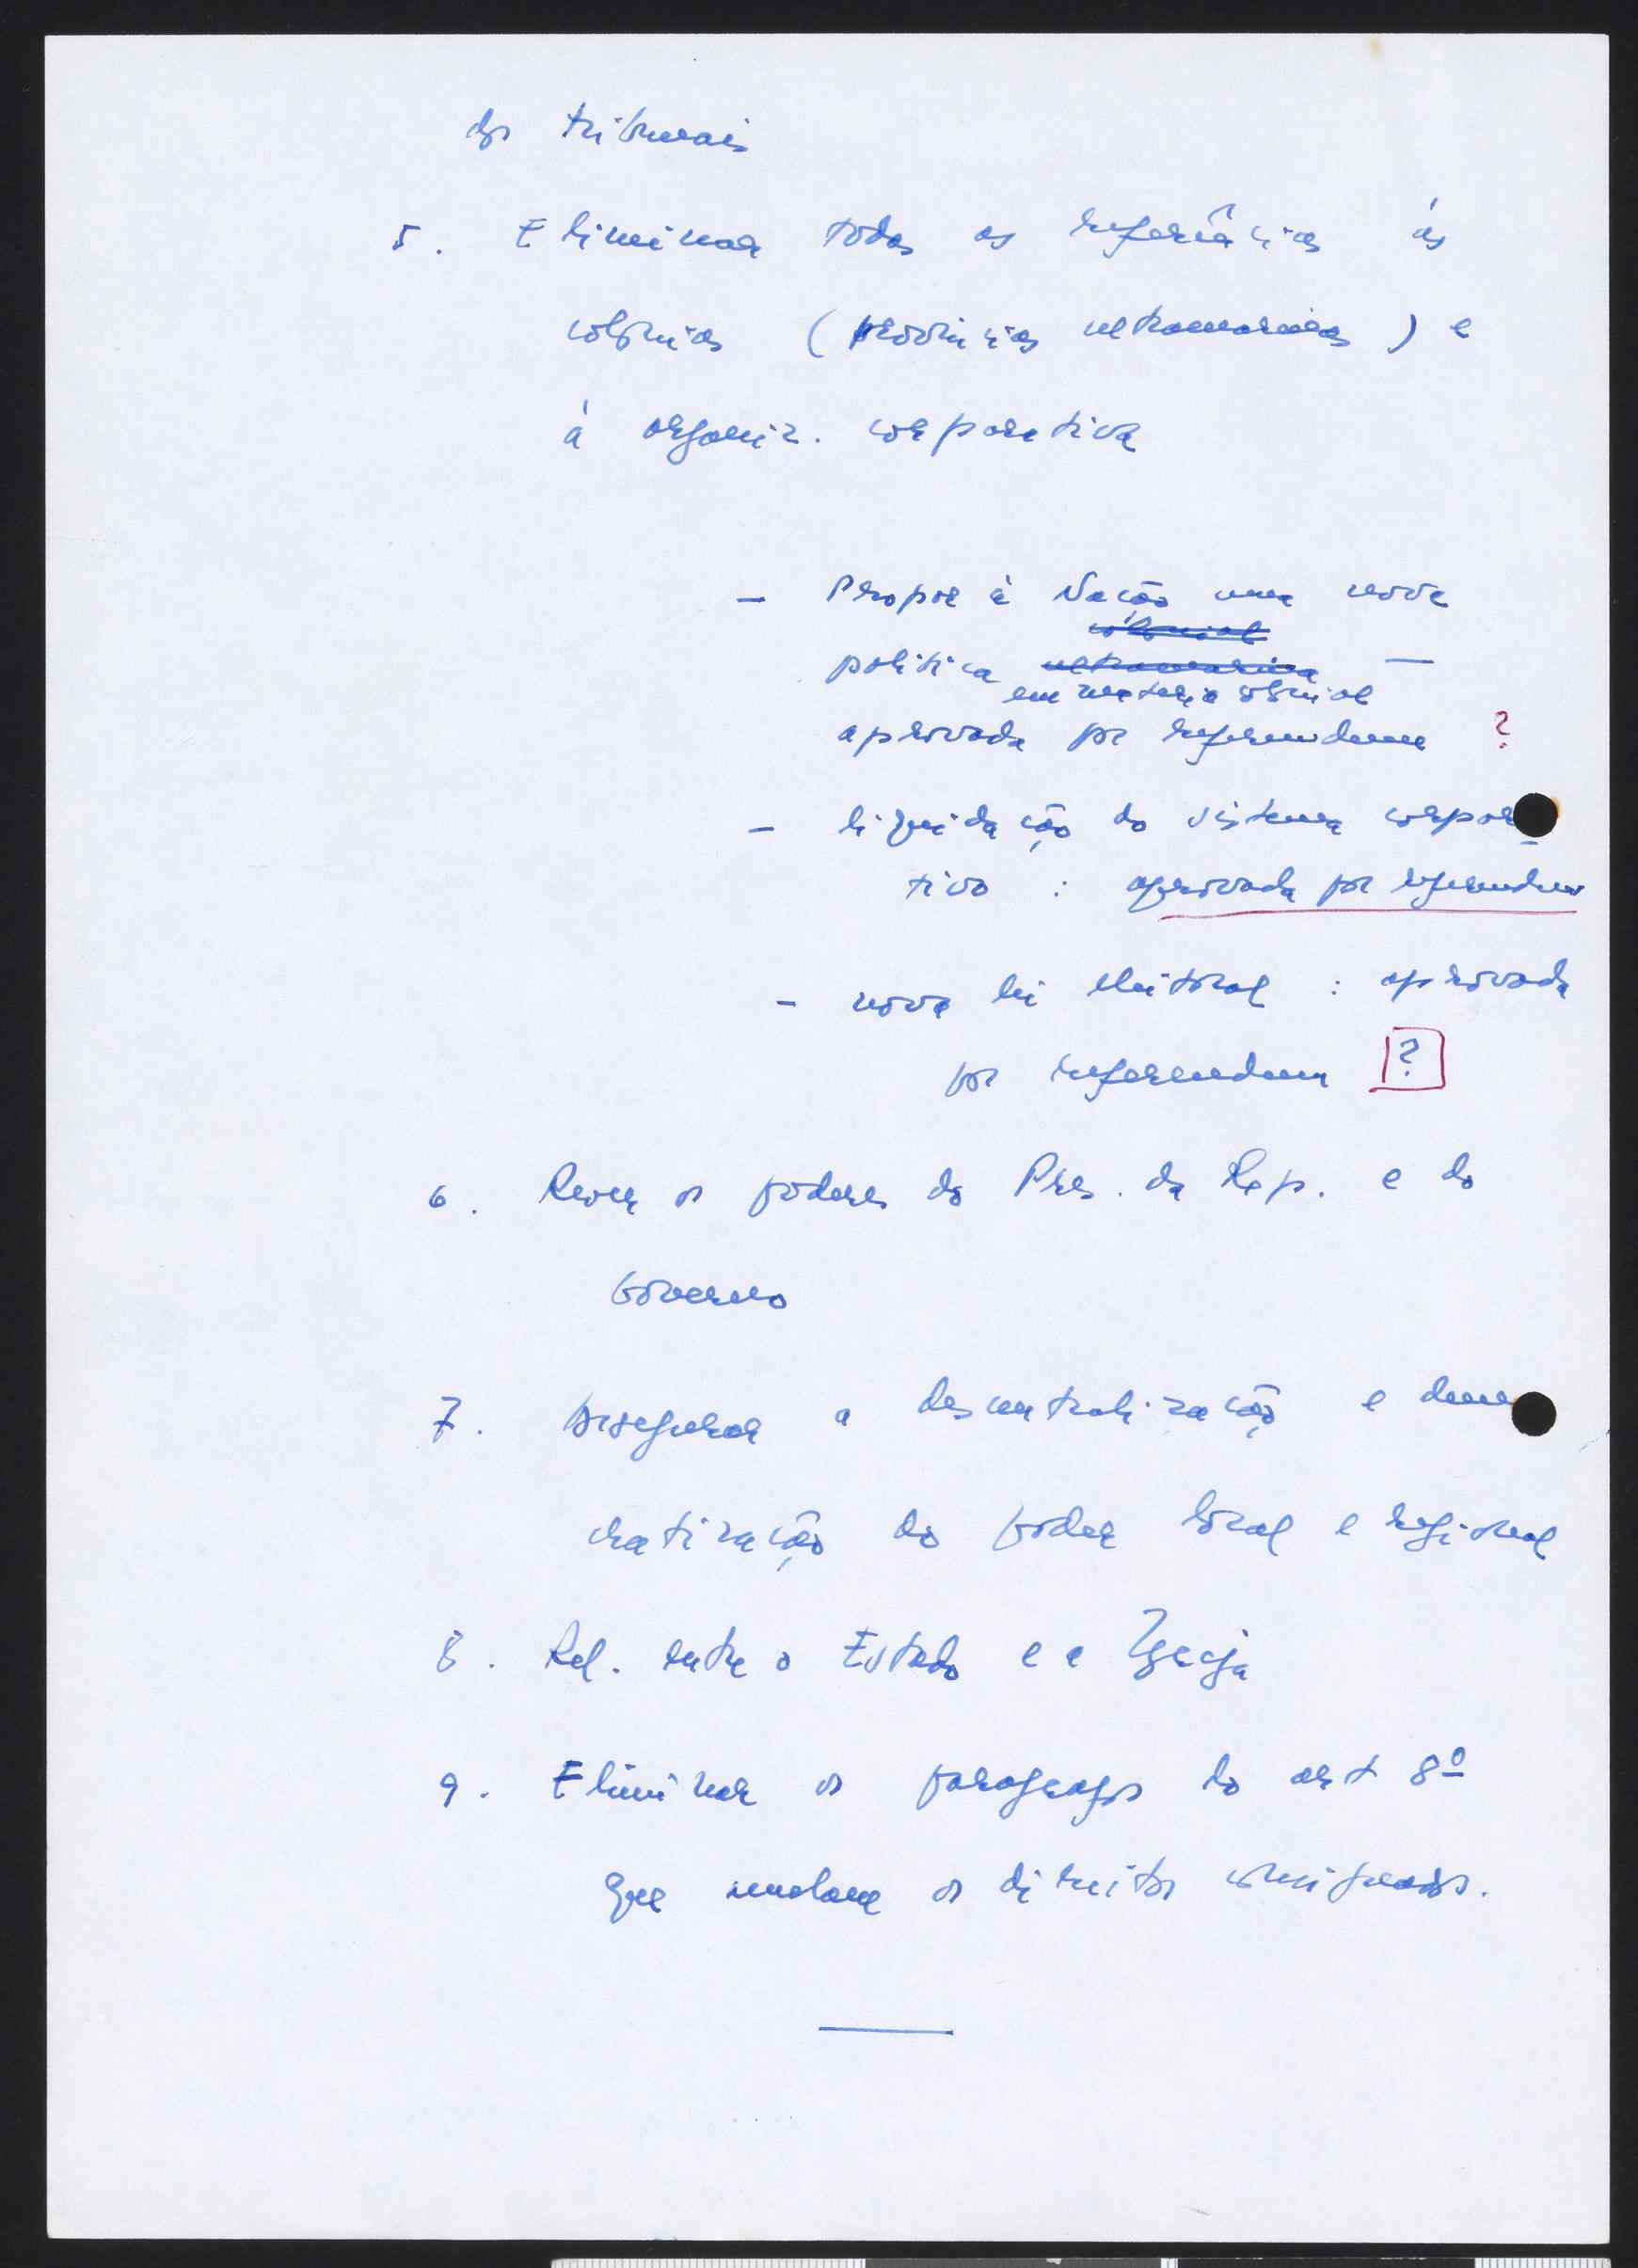 dos tribunais
5. Eliminar todas as referências ás
colónias (províncias ultramarinas) e
á organiz. corporativa
- Propor à Nação uma nova
colonial
politica ultramarina —
em materia colonial
aprovada por referendum ?
- liquidação do sistema corpora
tivo : aprovada por referendum
- nova lei eleitoral : aprovada
por referendum ?
6. Rever os poderes do Pres. da Rep. e do
Governo
7. Assegurar a descentralização e demo
cratização do poder local e regional
8. Rel. entre o Estado e a Igreja
9. Eliminar os paragrafos do art 8º
que anulam os direitos consignados.